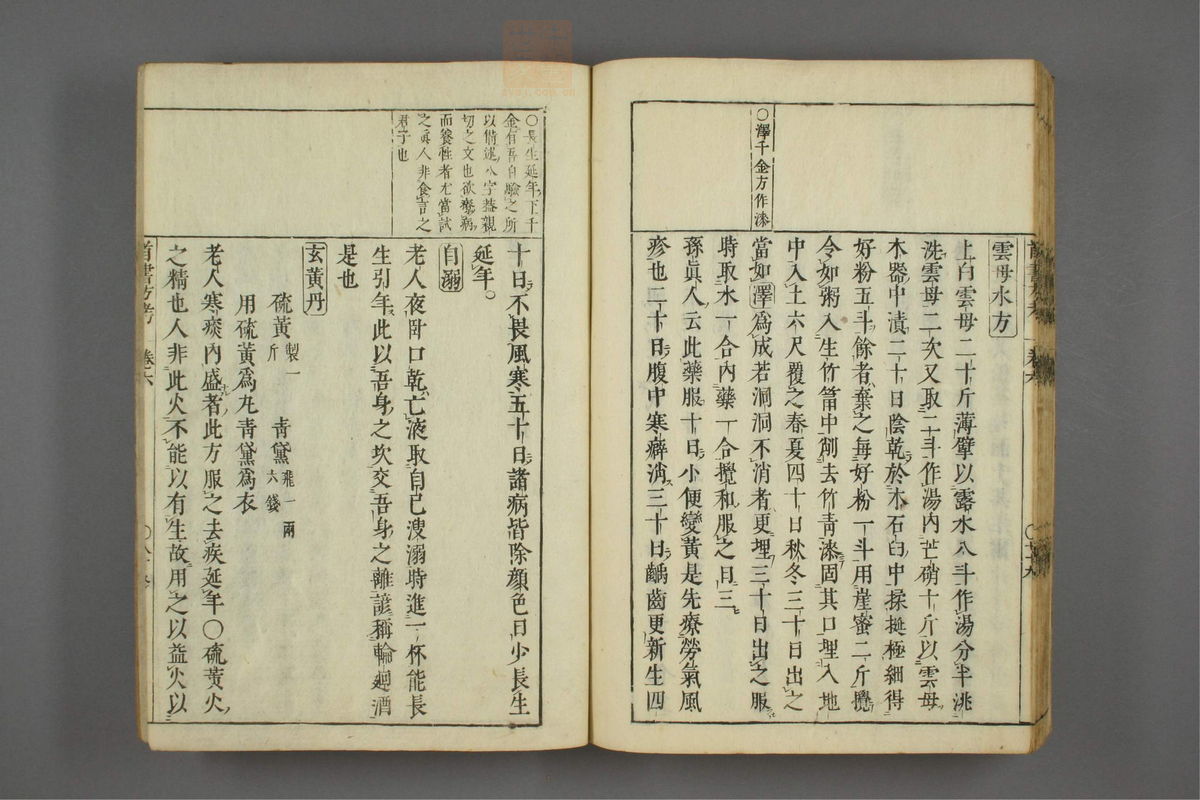 ○澤千金方作漆
雲母水方
上白雲母二十斤薄擘以露水八斗作湯分半洮
洗雲母二次又取二斗作湯內芒硝十斤以雲母
木器中漬二十日陰乾於木石臼中揉挻極細得
好粉五斗餘者棄之每好粉一斗用崖蜜二斤攪
令如粥入生竹筩中削去竹青漆固其口埋入地
中入土六尺覆之春夏四十日秋冬三十日出之
當如澤爲成若洞洞不消者更埋三十日出之服
時取水一合內藥一合攪和服之日三
孫眞人云此藥服十日小便變黃是先療勞氣風
疹也二十日腹中寒癖消三十日齲齒更新生四
○長生延年下千
金有吾自驗之所
以述八字葢親
切之文也欲療病
而養性者尤當試
之眞人非食言之
君子也
十日不畏風寒五十日諸病皆除顔色日少長生
延年。
自溺
老人夜臥口乾亡液取自己溲溺時進一杯能長
生引年此以吾身之坎交吾身之離諺稱輪迴酒
是也
玄黃丹
硫黃製一斤 青黛飛一兩六錢
用硫黃爲丸青黛爲衣
老人寒痰內盛者此方服之去疾延年○硫黃火
之精也人非此火不能以有生故用之以益火以
首書方考 卷六